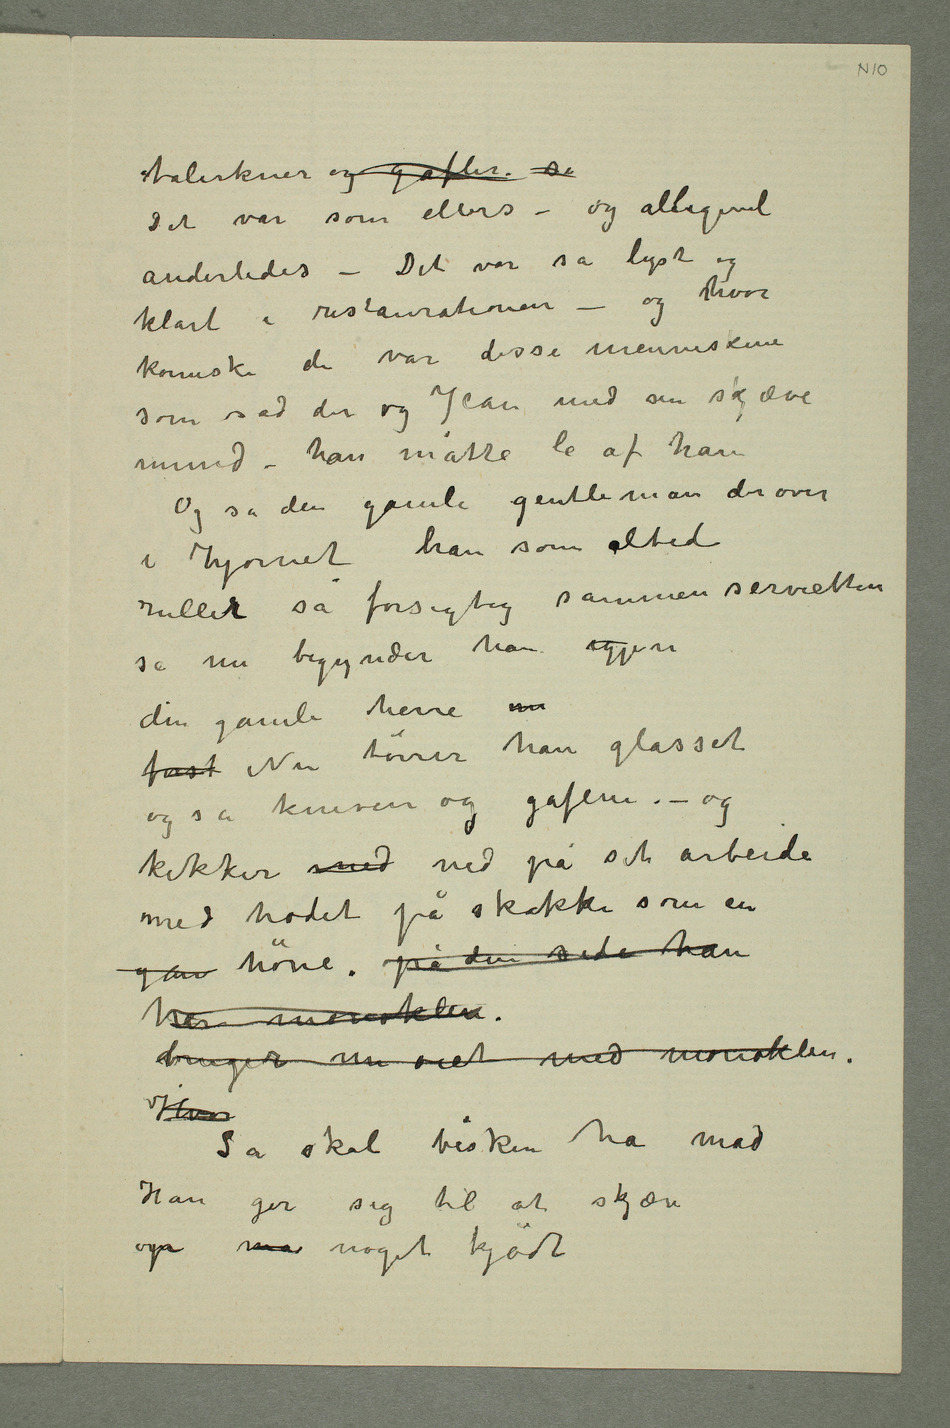 N10
talerkner og gafler. så
Det var som ellers – og alligevel
anderledes – Det var så lyst og
klart i restaurationen – og hvor
komiske de var disse menneskene
som sad der og Jean med sin skjæve
mund – han måtte le af ham
Og så den gamle gentleman derover
i hjørnet han som altid
ruller så forsigtig sammen servietten
så nu begynder han igjen
den gamle herre nu
først Nu törrer han glasset
og så kniven og gaflene. – og
kikker med ned på sit arbeide
med hodet på skakke som en
gam höne. på den side han
har monoklen.
bruger nu øiet med monoklen.
Hvor
Så skal bisken ha mad
Han gir sig til at skjære
op noget kjödt